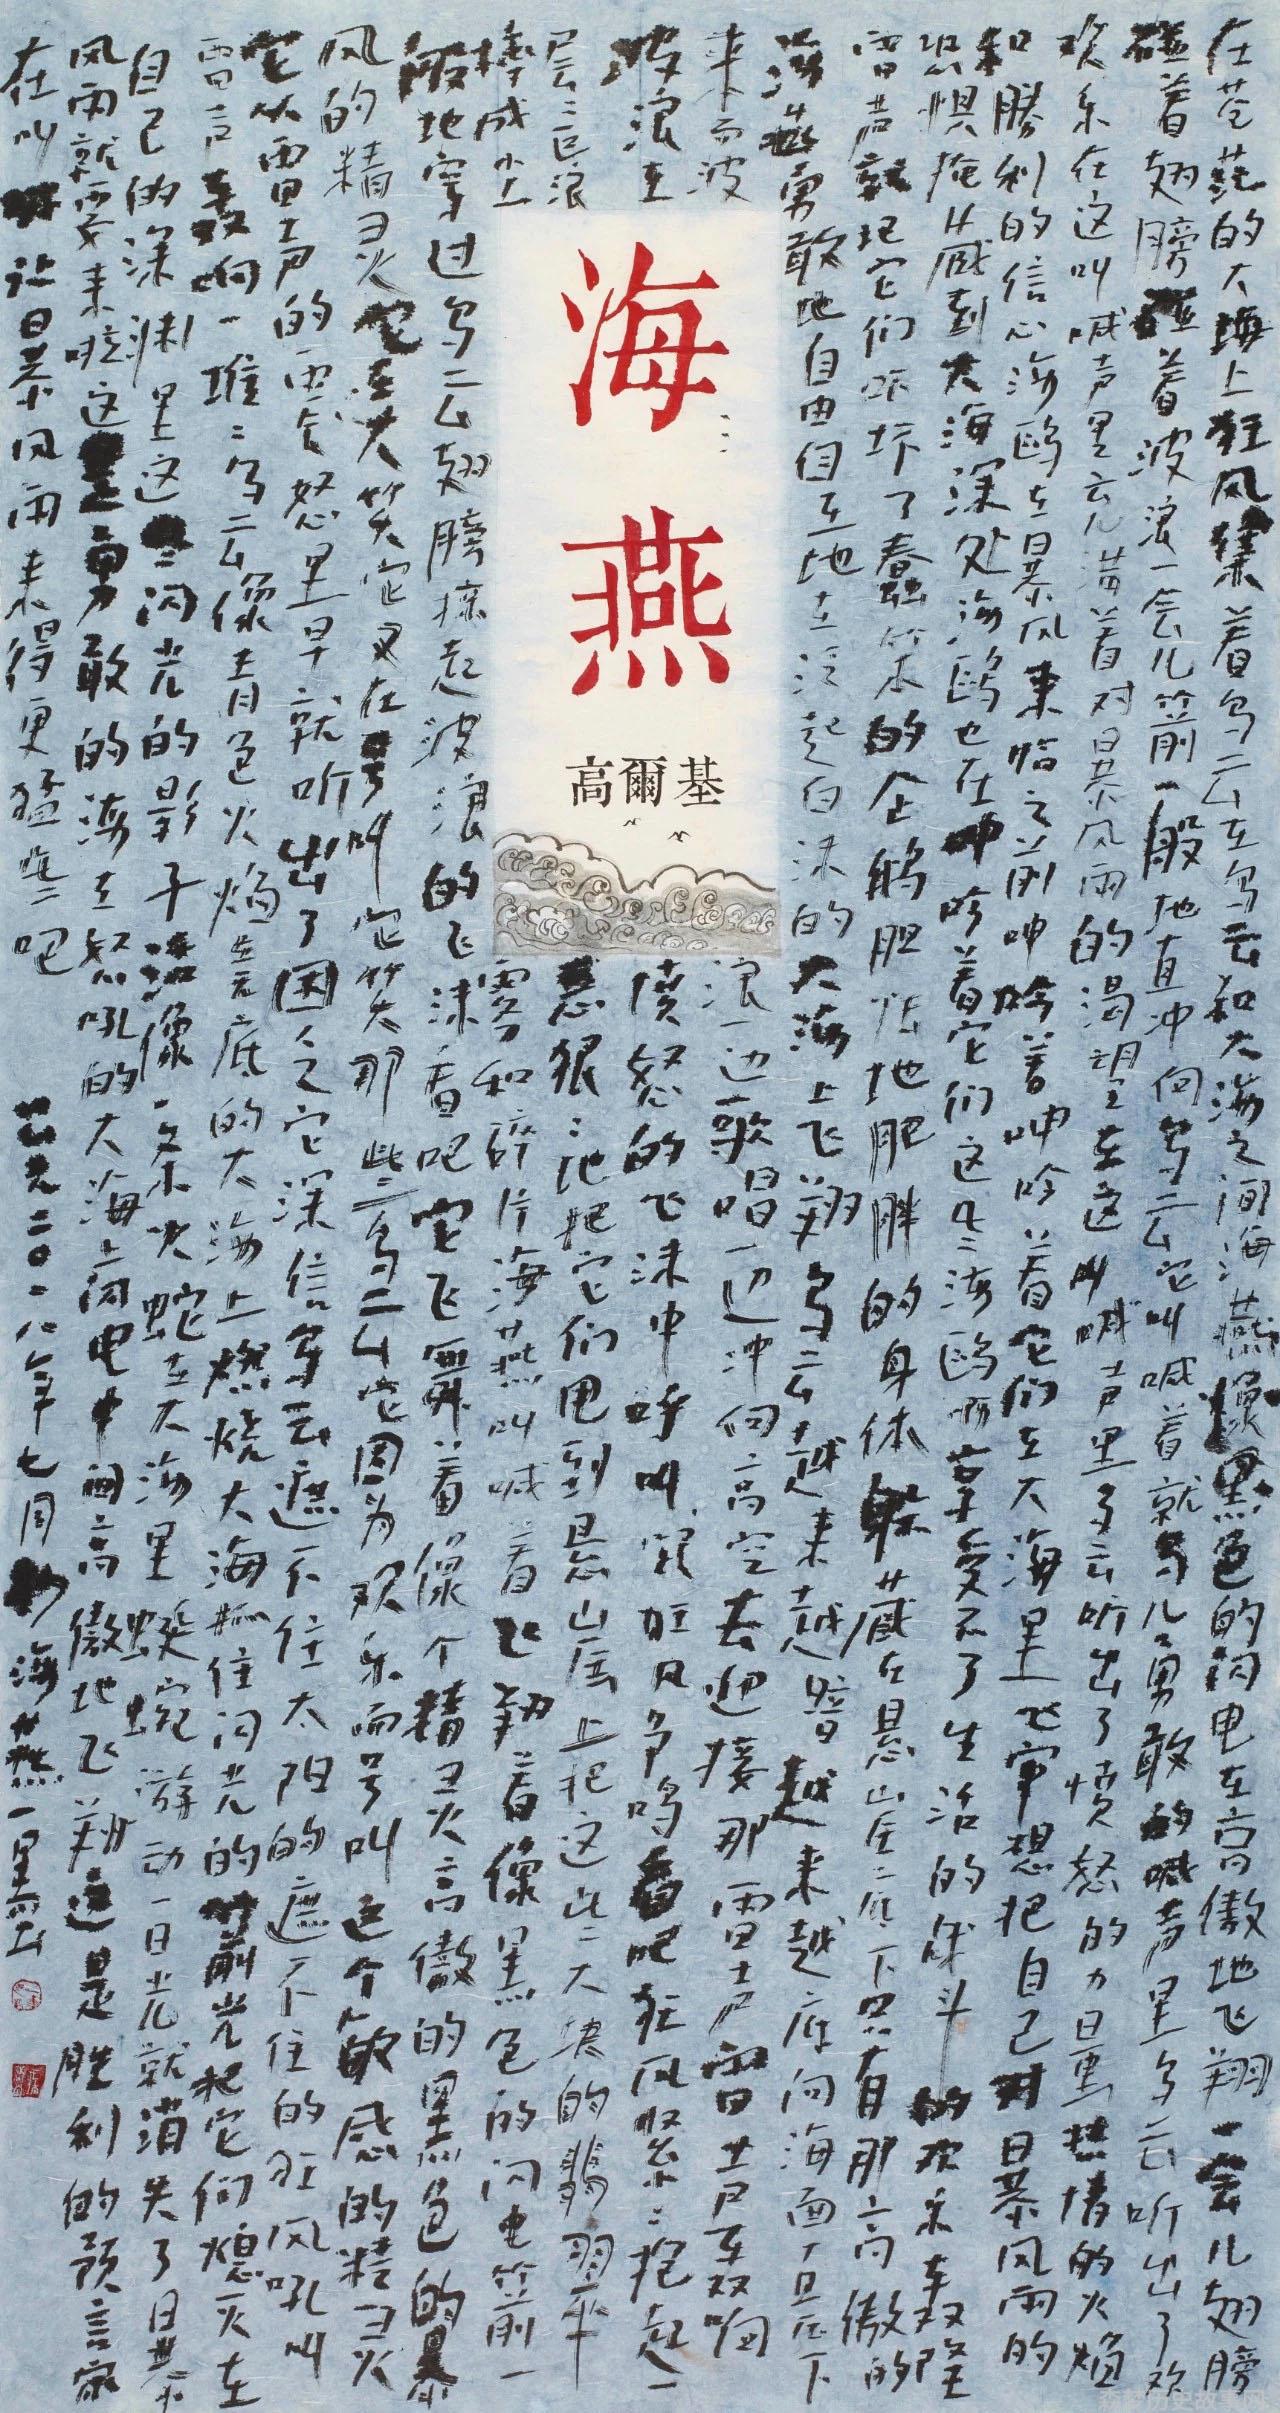 在苍茫的大海上狂风集着乌云在乌云和大海之间海燕像黑色的闪电在高傲地飞翔一会儿翅膀
碰着翅膀碰着波浪一会儿箭一般地直冲向乌云它叫喊着就鸟儿勇敢的喊声里乌云听出了欢
欢乐在这叫喊声里充满着对暴风雨的渴望在这叫喊声里乌云听出了愤怒的力量热情的火焰
和胜利的信心海鸥在暴风来临之前呻吟着呻吟着它们在大海里飞窜想把自己对暴风雨的
恐惧掩藏到大海深处海鸥也在呻吟着它们这些海鸥啊享受不了生活的战斗的欢乐轰隆
雷声就把它们吓坏了蠢笨的企鹅胆怯地肥胖的身体躲藏在悬崖底下只有那高傲的
海燕勇敢地自由自在地在泛起白沫的大海上飞翔乌云越来越暗越来越底向海面直压下
来而波浪一边歌唱一边冲向高空去迎接那雷声雷声轰响
波浪在愤怒的飞沫中呼叫跟狂风争鸣看吧狂风紧紧抱起一
层层巨浪恶狠狠地把它们甩到悬崖上把这些大块的翡翠
摔成尘雾和碎片海燕叫喊着飞翔着像黑色的闪电箭一
般地穿过乌云翅膀掠起波浪的飞沫看吧它飞舞着像个精灵高傲的黑色的暴
风的精灵它在大笑它又在号叫它笑那些乌云它因为欢乐而号叫这个敏感的精灵
它从雷声的震怒里早就听出了困乏它深信乌云遮不住太阳的遮不住的狂风吼叫
雷声轰响一堆堆乌云像青色火焰在无底的大海上燃烧大海抓住闪光的箭光把它们熄灭在
自己的深渊里这些闪光的影子活像一条火蛇在大海里蜿蜒游动一日光就消失了暴
风雨就要来啦这是勇敢的海在怒吼的大海上闪电中间高傲地飞翔这是胜利的预言家
在叫喊让暴风雨来得更猛些吧
公元二〇一八年七月抄海燕一墨云
海燕
高爾基